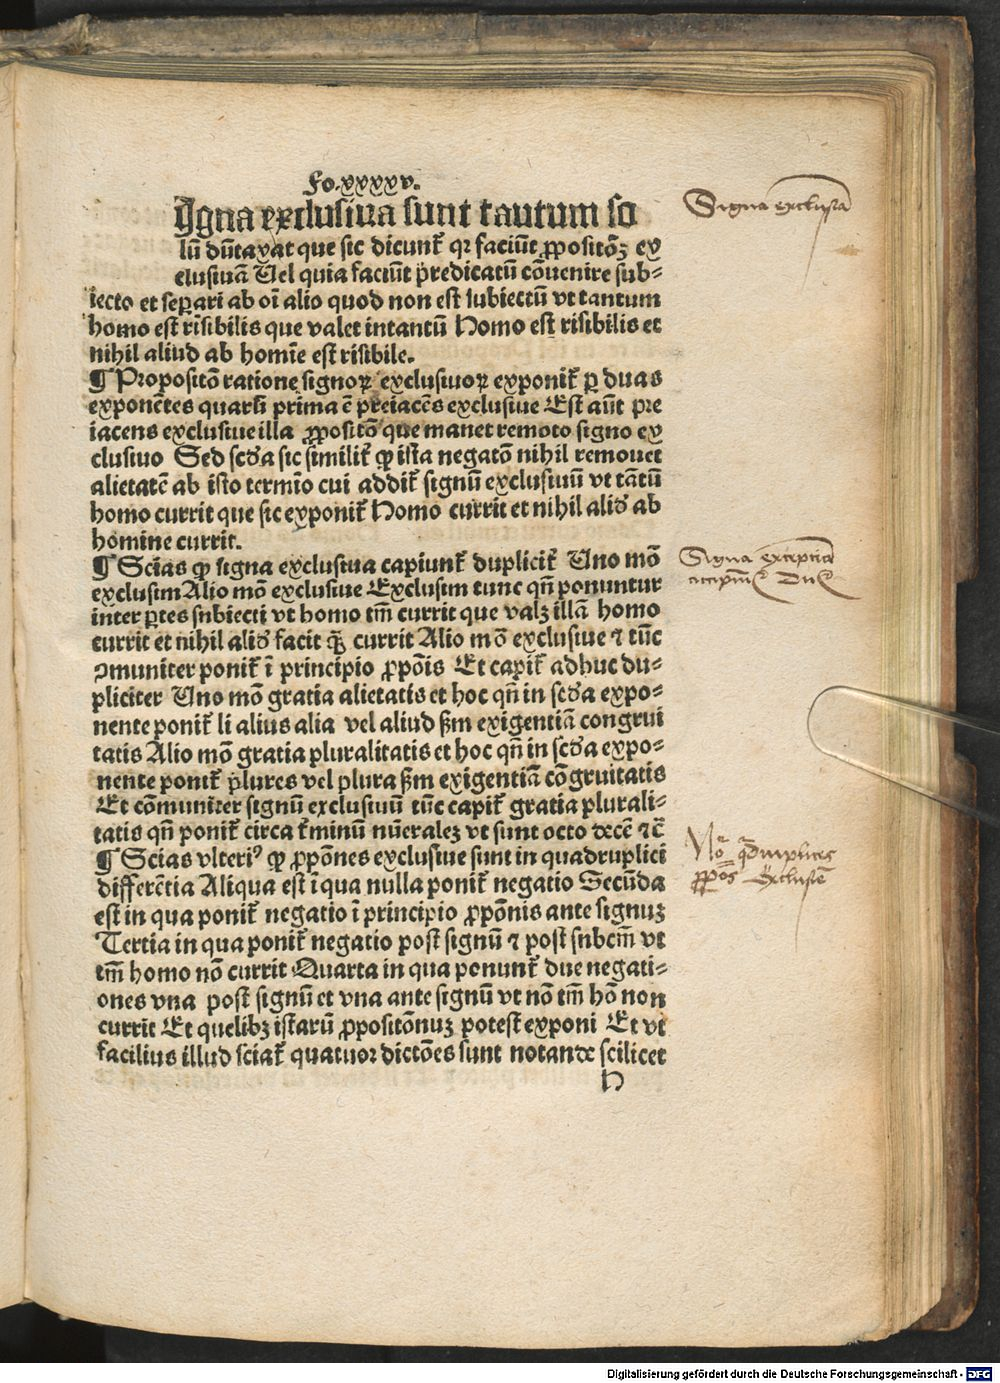 Fo. xxxxv.
Igna exclusiua sunt tantum so
lũ dũtaxat que sic dicunt᷑ qꝛ faciũt ꝓpositõꝫ ex
clusiuã Uel quia faciũt p̃redicatũ cõuenire sub⸗
iecto et seꝑari ab oĩ alio quod non est subiectũ vt tantum
homo est risibilis que valet intantũ Homo est risibilis et
nihil aliud ab homĩe est risibile.
¶ Propositõ ratione signoꝝ exclusiuoꝝ exponit᷑ ꝑ duas
exponẽtes quarũ prima ẽ preiacẽs exclusiue Est aũt pre
iacens exclusiue illa ꝓpositõ que manet remoto signo ex
clusiuo Sed scd̃a sic similit᷑ ꝙ ista negatõ nihil remouet
alietatẽ ab isto termĩo cui addit᷑ signũ exclusiuũ vt tãtũ
homo currit que sic exponit᷑ Homo currit et nihil aliđ ab
homine currit.
¶ Scias ꝙ signa exclusiua capiunt᷑ duplicit᷑ Uno mõ
exclusim Alio mõ exclusiue Exclusim tunc qñ ponuntur
inter ꝑtes snbiecti vt homo tm̃ currit que valꝫ illã homo
currit et nihil aliđ facit q̃ꝫ currit Alio mõ exclusiue ⁊ tũc
ꝯmuniter ponit᷑ ĩ principio ꝓpõis Et capit᷑ adhuc du⸗
pliciter Uno mõ gratia alietatis et hoc qñ in scd̃a expo⸗
nente ponit᷑ li alius alia vel aliud ẞm exigentiã congrui
tatis Alio mõ gratia pluralitatis et hoc qñ in scd̃a expo⸗
nente ponit᷑ plures vel plura ẞm exigentiã cõgruitatis
Et cõmuniter signũ exclusiuũ tũc capit᷑ gratia plurali⸗
tatis qñ ponit᷑ circa t᷑minũ nũeralez vt sunt octo decẽ ⁊c̃
¶ Scias vlteriꝰ ꝙ ꝓpõnes exclusiue sunt in quadruplici
differẽtia Aliqua est ĩ qua nulla ponit᷑ negatio Secũda
est in qua ponit᷑ negatio ĩ principio ꝓpõnis ante signuꝫ
Tertia in qua ponit᷑ negatio post signũ ⁊ post snbcm̃ vt
tm̃ homo nõ currit Quarta in qua ponunt᷑ due negati⸗
ones vna post signũ et vna ante signũ vt nõ tm̃ hõ non
currit Et quelibꝫ istarũ ꝓpositõnuꝫ potest exponi Et vt
facilius illud sciat᷑ quatuor dictões sunt notande scilicet
h
Signa exclusiua
Signa
exclusiẽ
Digitalisierung gefördert durch die Deutsche Forschungsgemeinschaft - DFG